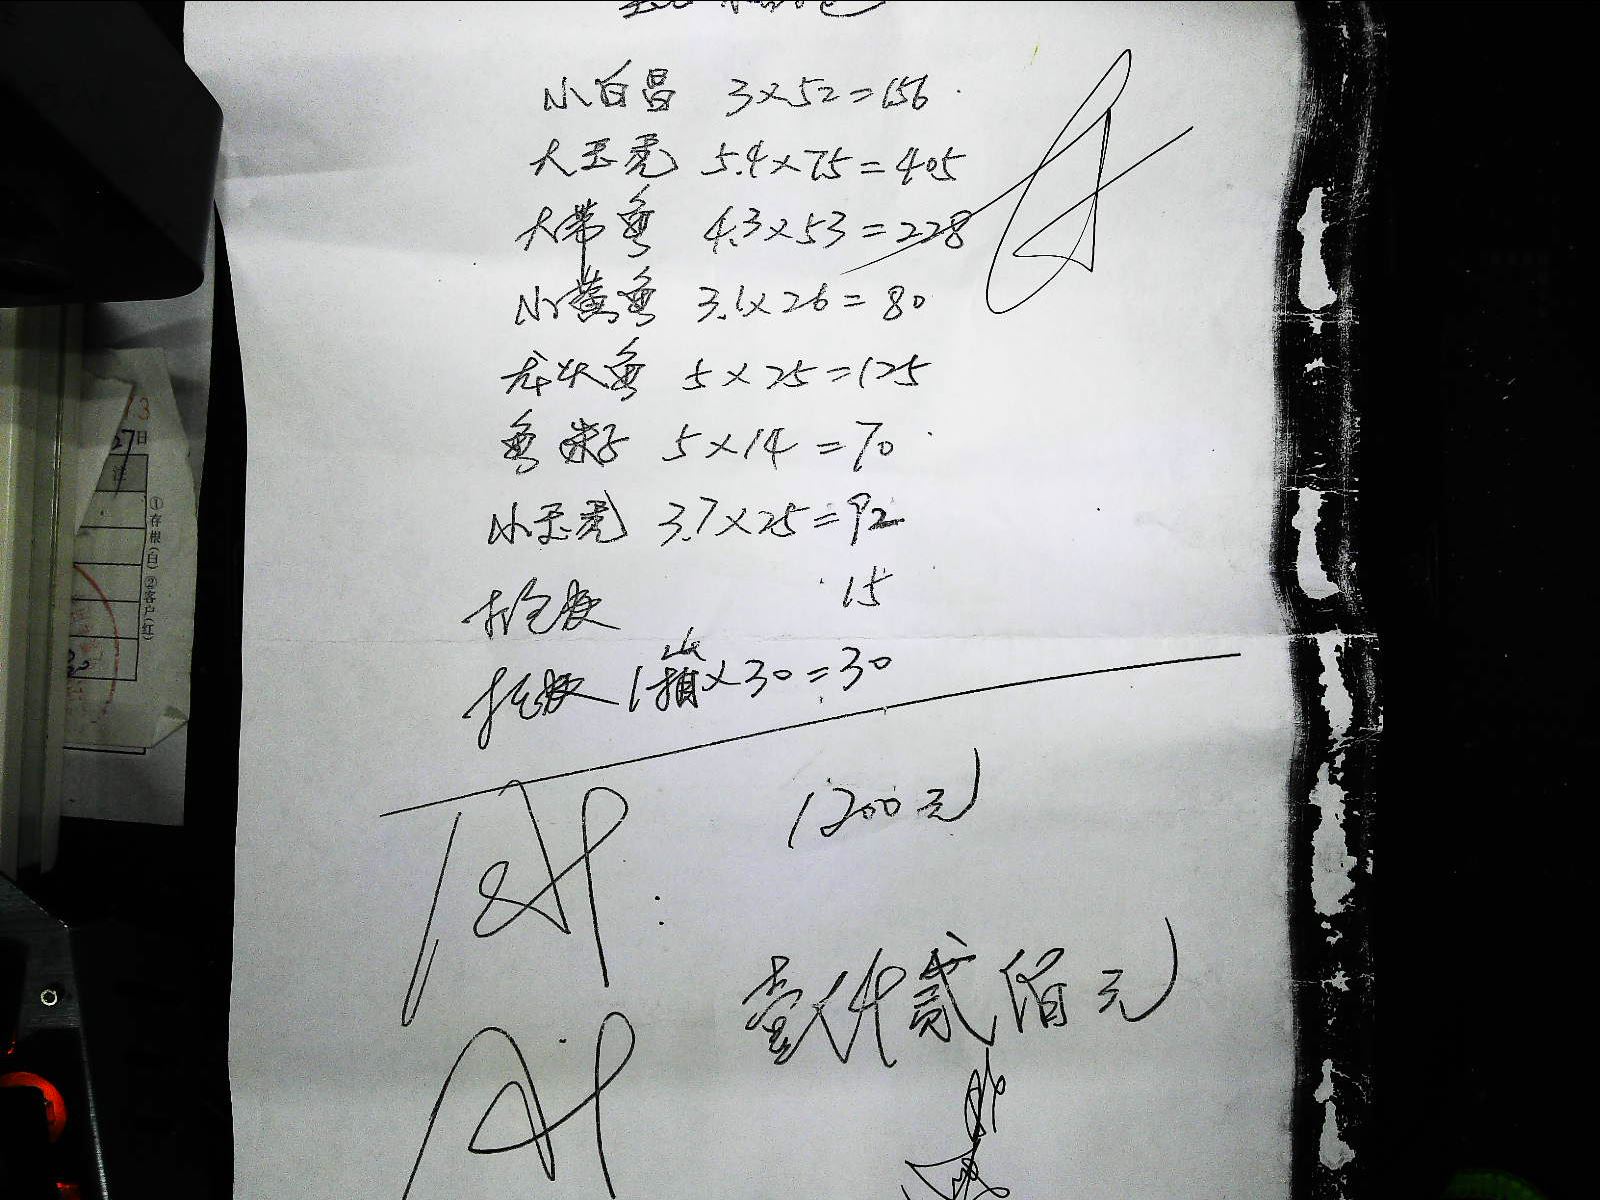 小白昌 3×52=156
大玉虎 5.4×75=405
大带鱼 4.3×53=228
小黄鱼 3.1×26=80
龙头鱼 5×25=125
鱼 5×14=70
小玉虎 3.7×25=92
15
1 ×30=30
1200元
壹仟贰佰元
27日
注
①存根(白)②客户(红)